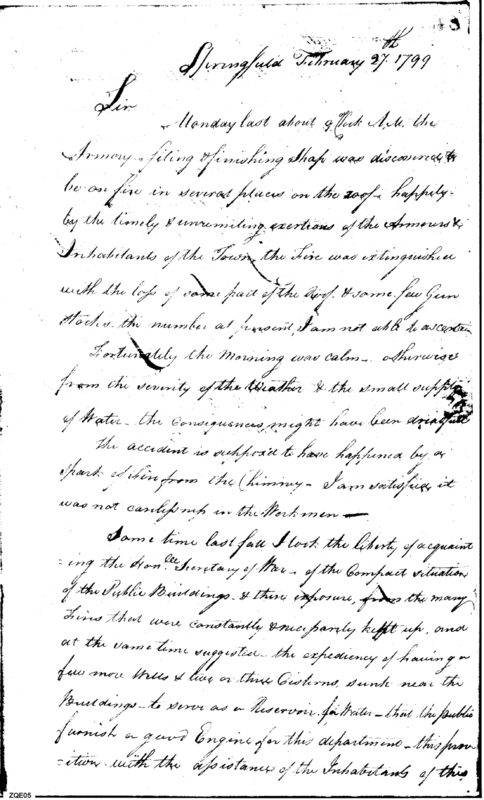 Springfield February 27th 1799
Sir
Monday last about 9 Clock A.M. the
Armory filing & finishing Shop was discovered to
be on fire in several places on the roof - happely -
by the timely & unremiting exertions of the Armourers &
Inhabitants of the Town, the Fire was extinguished
with the loss of some part of the Roof, & some few Gun
Stocks. the number at present, I am not able to ascertain
Fortunately the Morning was calm - otherwise
from the severity of the Weather & the small supply
of Water - the consequences might have been dreadfull
The accident is suppos'd to have happened by a
spark of fire from the Chimney - I am satisfied it
was not carelessness in the Workmen -
Some time last fall I took the liberty of acquaint
=ing the Honble Secretary of War - of the Compact situation
of the Public Buildings & there exposure, from the many
Fires that were constantly & necessarily kept up, and
at the same time suggested - the expediency of having a
few more Wells & two or three Cisterns, sunk near the
Buildings - to serve as a Reservoir for Water - that the public
furnish a good Engine for this department - this
=ition with the assistance of the Inhabitants of this
ZQE05